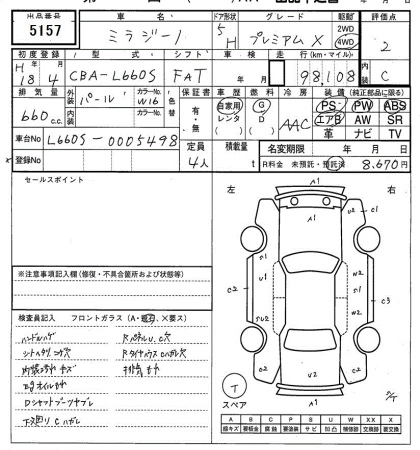 出品番号 5157
車名 ミラジーノ
ドア形状 5 H
グレード プレミアム X
駆動 2WD 4WD
評価点 2
初度登録 H 18年 4月
型式 CBA-L660S
シフト FAT
車検 年 月
走行(km・マイル) 98,108
内装 C
排気量 660 c.c.
外装 パール
カラーNo. W16
内装 カラーNo.
色替
保証書 有・無
車歴 自家用 レンタ ( )
燃料 G D ( )
冷房 AAC
装備(純正部品に限る)
PS PW ABS
エアB AW SR
革 ナビ TV
車台No L660S-0005498
登録No
定員 4人
積載量 t
名変期限 年 月 日
R料金 未預託・預託済 8,670円
セールスポイント
※注意事項記入欄(修復・不具合箇所および状態等)
検査員記入 フロントガラス(A・飛石・X要ス)
ハンドルハゲ
シートハゲ、コゲ穴
内装汚れ キズ
EGオイルもれ
Dシャフトブーツヤブレ
下廻り C ハガレ
RパネルU、C穴
Rタイヤハウス Cハガレ穴
排気もれ
左 右
A1
U2 C1
S1 U1 C2 SU2
A1
S1 W2 C3 W2 S2
C2 U2 C2
A1
T スペア
A B C P S U W XX X
線キズ 要板金 腐蝕 要塗装 サビ 凹凸 補修跡 交換跡 要交換